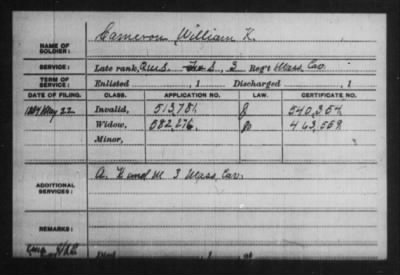 NAME OF SOLDIER: Cameron, William K.
SERVICE: Late rank, Q.M.S. 3 Reg't Mass. Cav.
TERM OF SERVICE: Enlisted , 1 Discharged , 1
DATE OF FILING. CLASS. APPLICATION NO. LAW. CERTIFICATE NO.
1884 May 22 Invalid, 513,781 540,354
Widow, 582,276. 463,559
Minor,
ADDITIONAL SERVICES: A. K and M 3 Mass. Cav.
REMARKS: